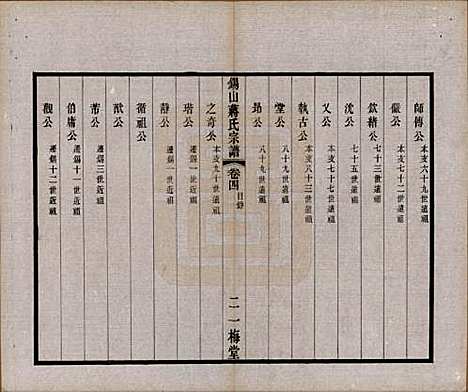 師傅公 本支六十九世遠祖
儼公 本支七十二世遠祖
欽緒公 七十三世遠祖
沈公 七十五世遠祖
又公 本支七十七世遠祖
執古公 本支八十三世遠祖
堂公 八十九世遠祖
昂公 八十九世遠祖
之奇公 本支九十世遠祖
錫山蔣氏宗譜 卷四 目錄 二 一梅堂
瑎公
靜公 遷錫一世近祖
循祖公
猷公
芾公 遷錫三世近祖
伯庸公 遷錫十一世近祖
觀公 遷錫十二世近祖